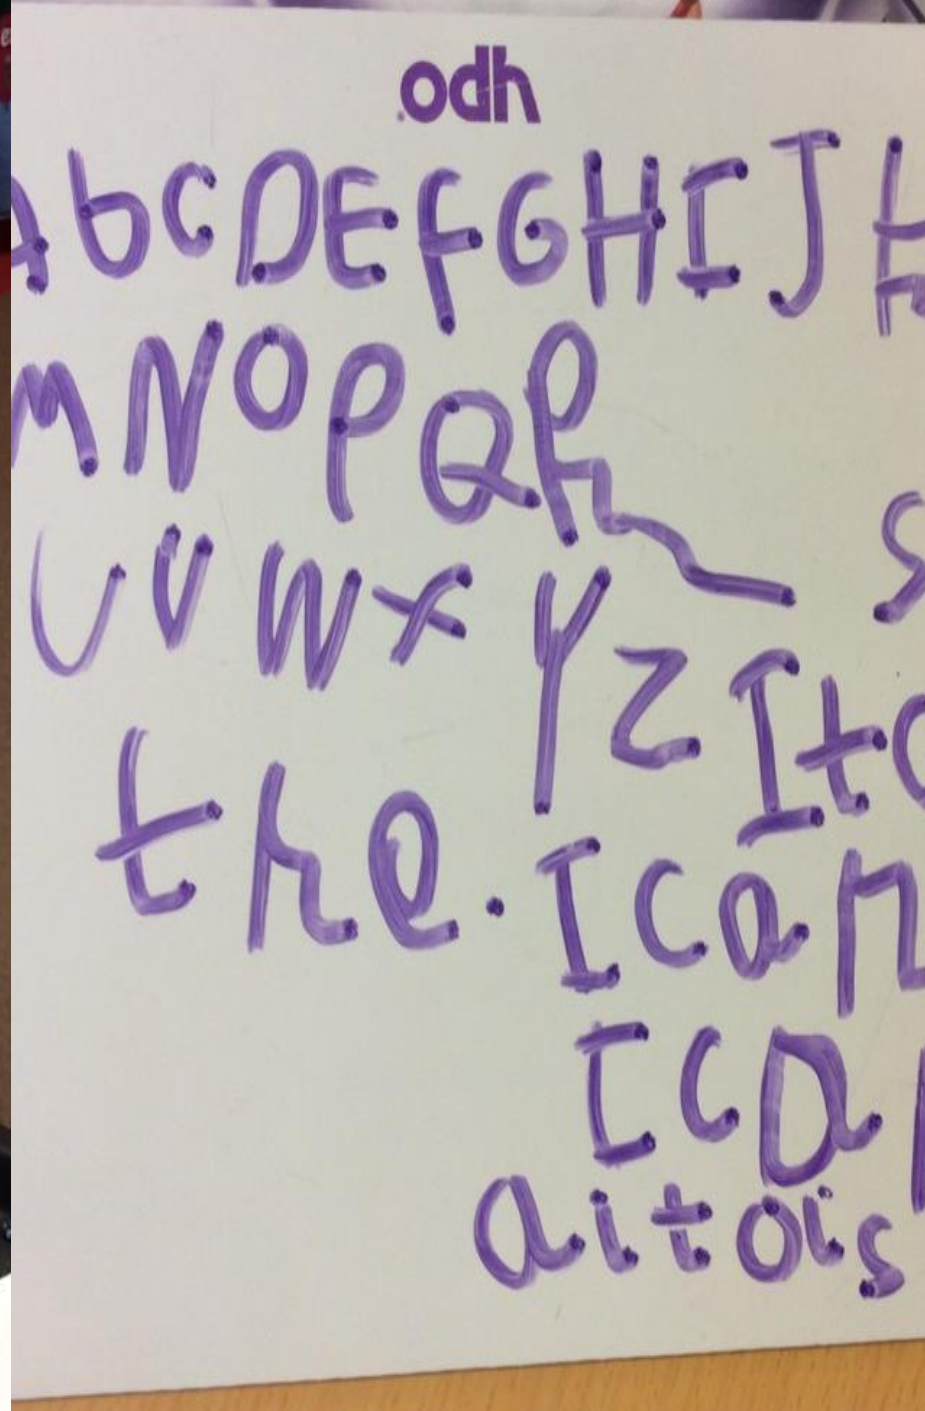 odh
A b C D E F G H I J
M N O P Q R S
U V W X Y Z It
the. I can
I ca
aitois